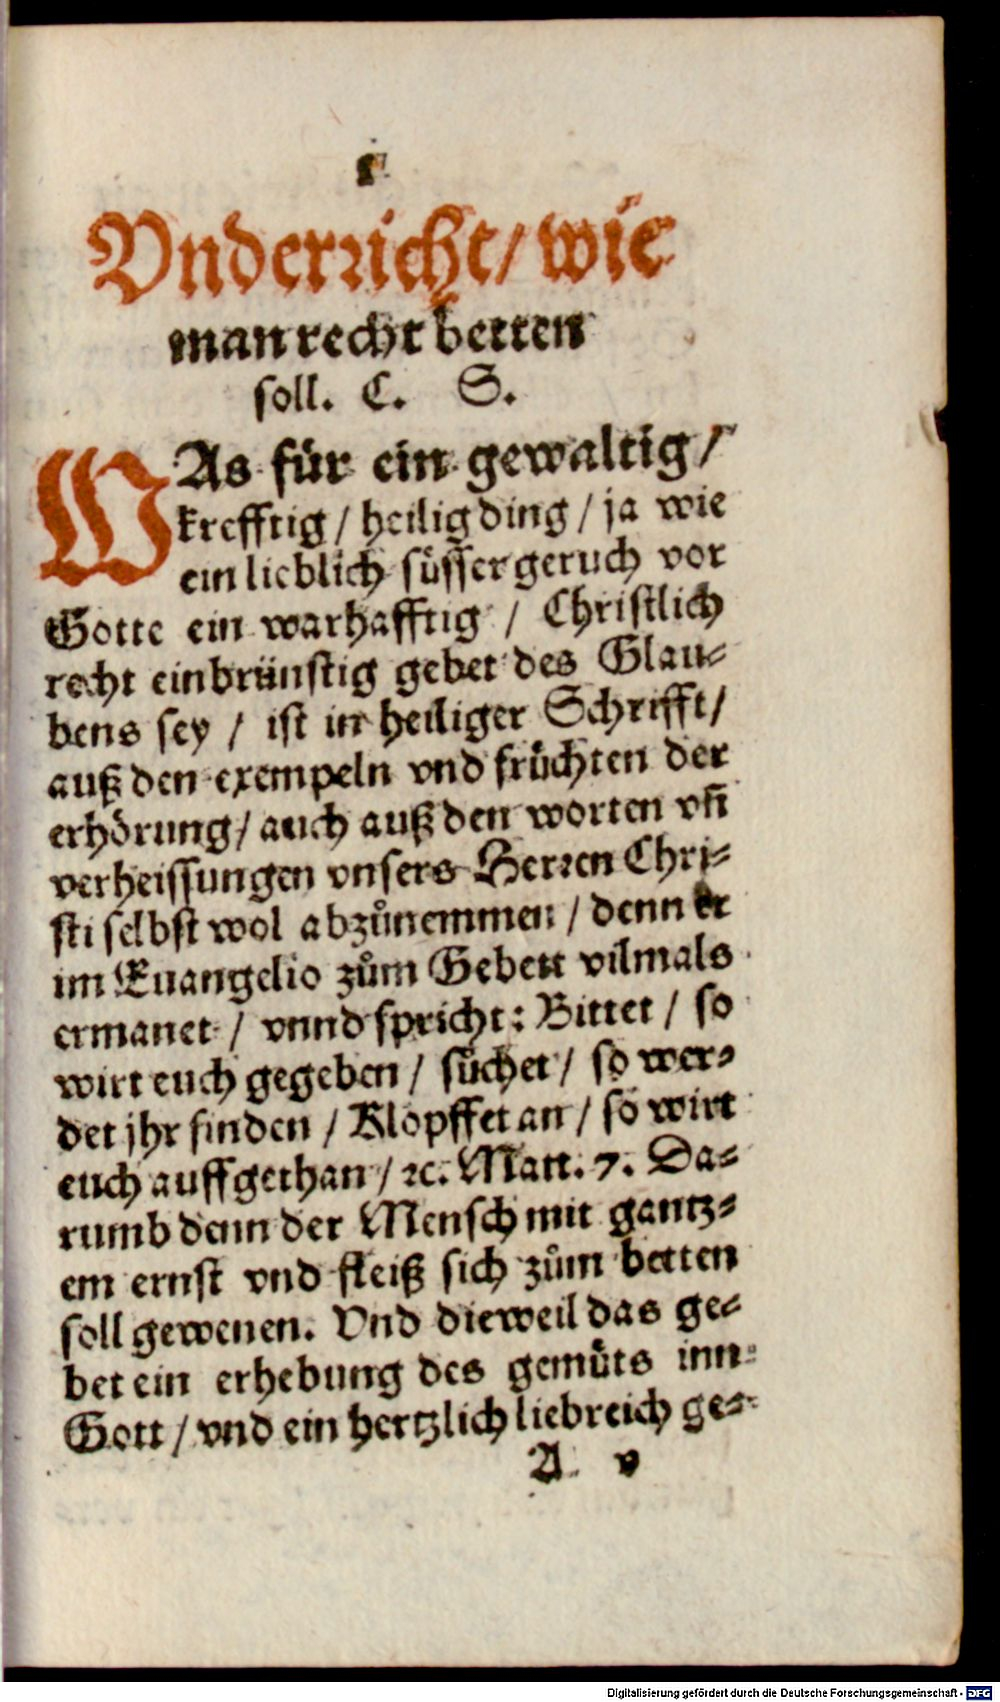 1
Vnderricht/ wie
man recht betten
soll. C. S.
WAs für ein gewaltig/
krefftig / heilig ding / ja wie
ein lieblich süsser geruch vor
Gotte ein warhafftig / Christlich
recht einbrünstig gebet des Glau⸗
bens sey / ist in heiliger Schrifft/
auß den exempeln vnd früchten der
erhörung/ auch auß den worten vñ
verheissungen vnsers Herren Chri⸗
sti selbst wol abzůnemmen / denn er
im Euangelio zům Gebett vilmals
ermanet / vnnd spricht: Bittet / so
wirt euch gegeben / sůchet / so wer⸗
det jhr finden / Klopffet an / so wirt
euch auffgethan / ꝛc. Matt. 7. Da⸗
rumb denn der Mensch mit gantz⸗
em ernst vnd fleiß sich zům betten
soll gewenen. Vnd dieweil das ge⸗
bet ein erhebung des gemůts inn
Gott / vnd ein hertzlich liebreich ge⸗
A v
Digitalisierung gefördert durch die Deutsche Forschungsgemeinschaft - DFG